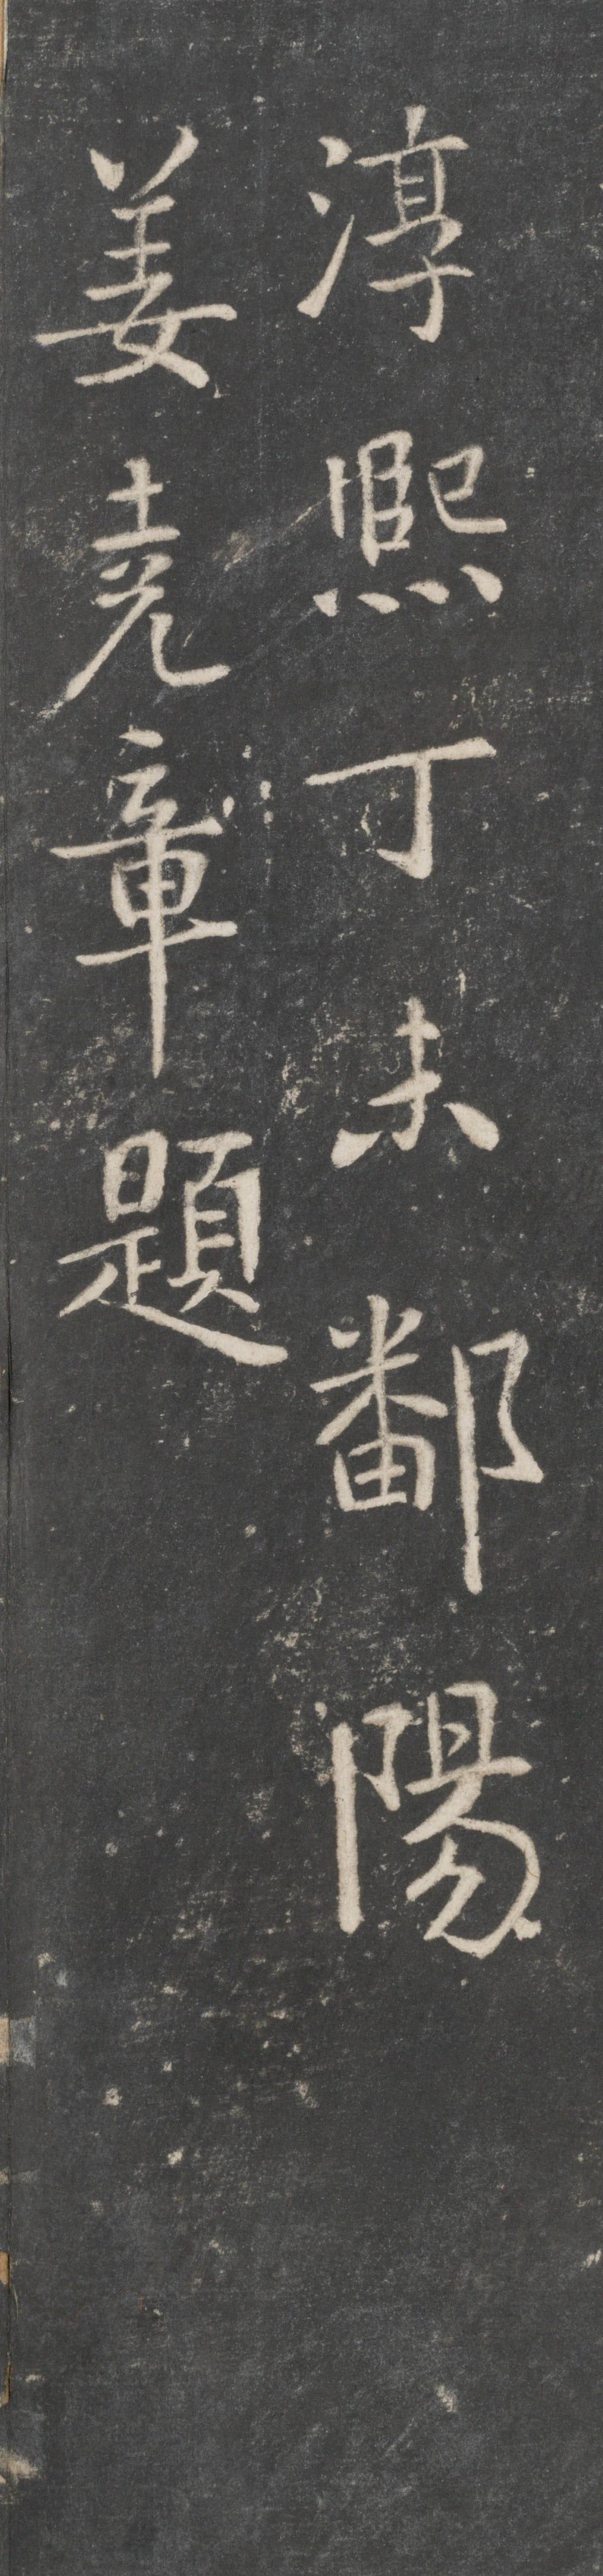 淳熙丁未鄱陽
姜堯章題